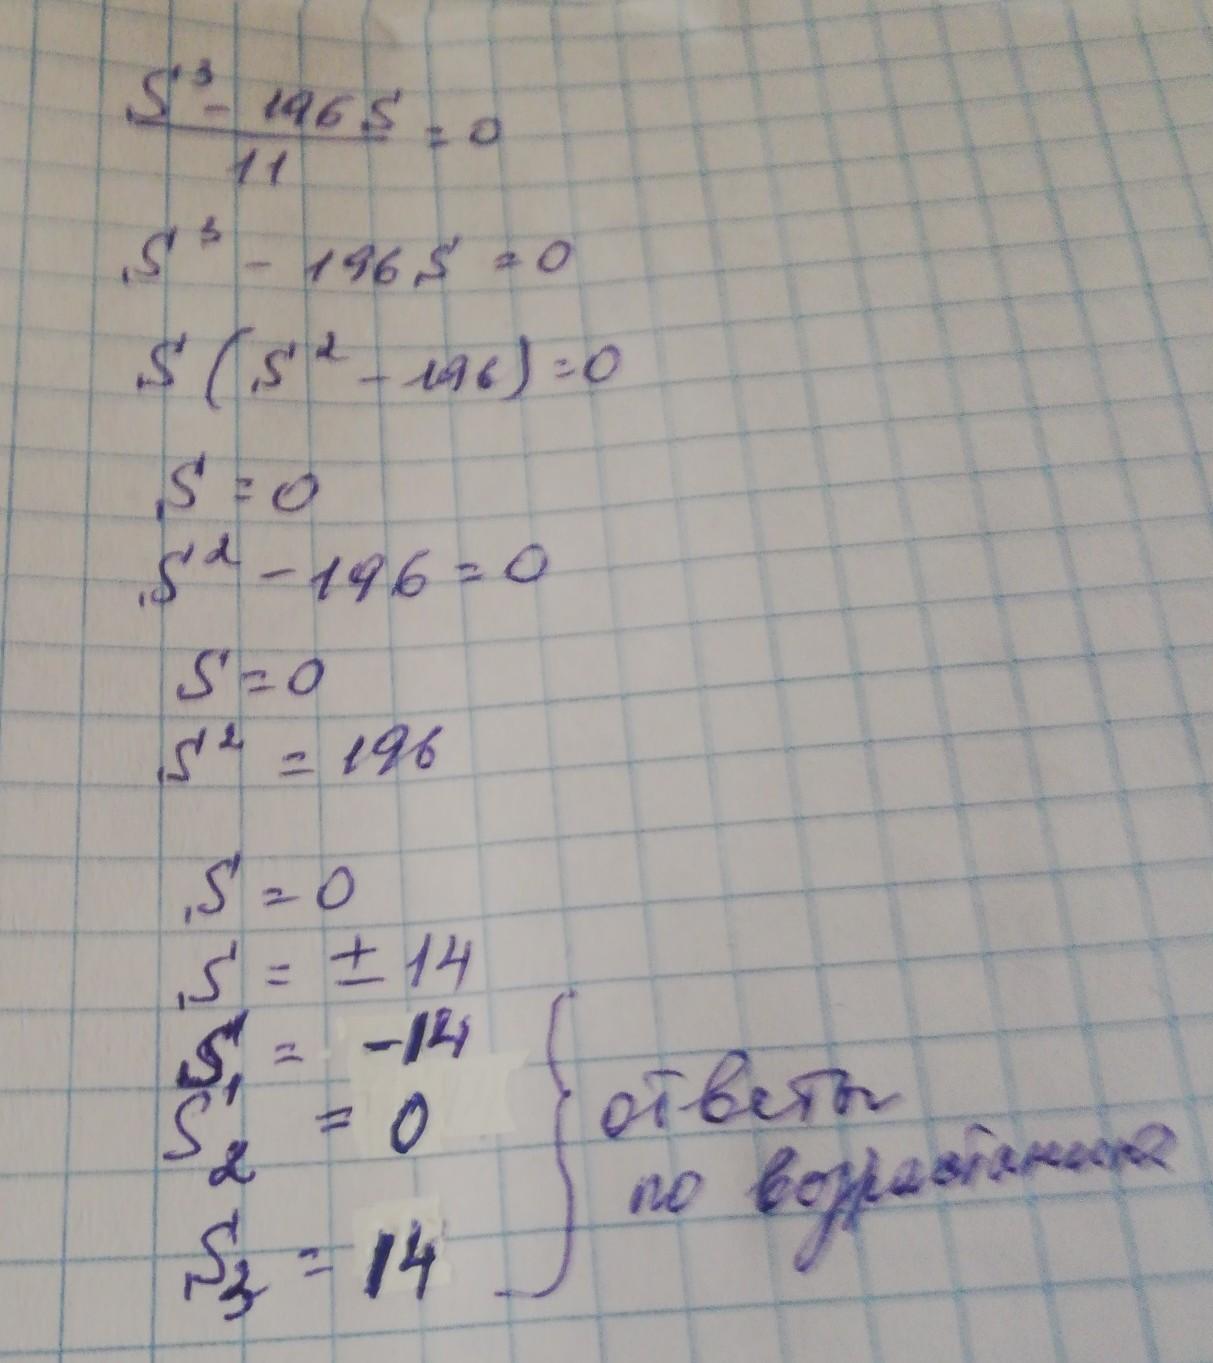 S³ - 196S
11
= 0
S³ - 196S = 0
S(S² - 196) = 0
S = 0
S² - 196 = 0
S = 0
S² = 196
S = 0
S = ± 14
S₁ = -14
S₂ = 0
S₃ = 14
ответы
по возрастанию